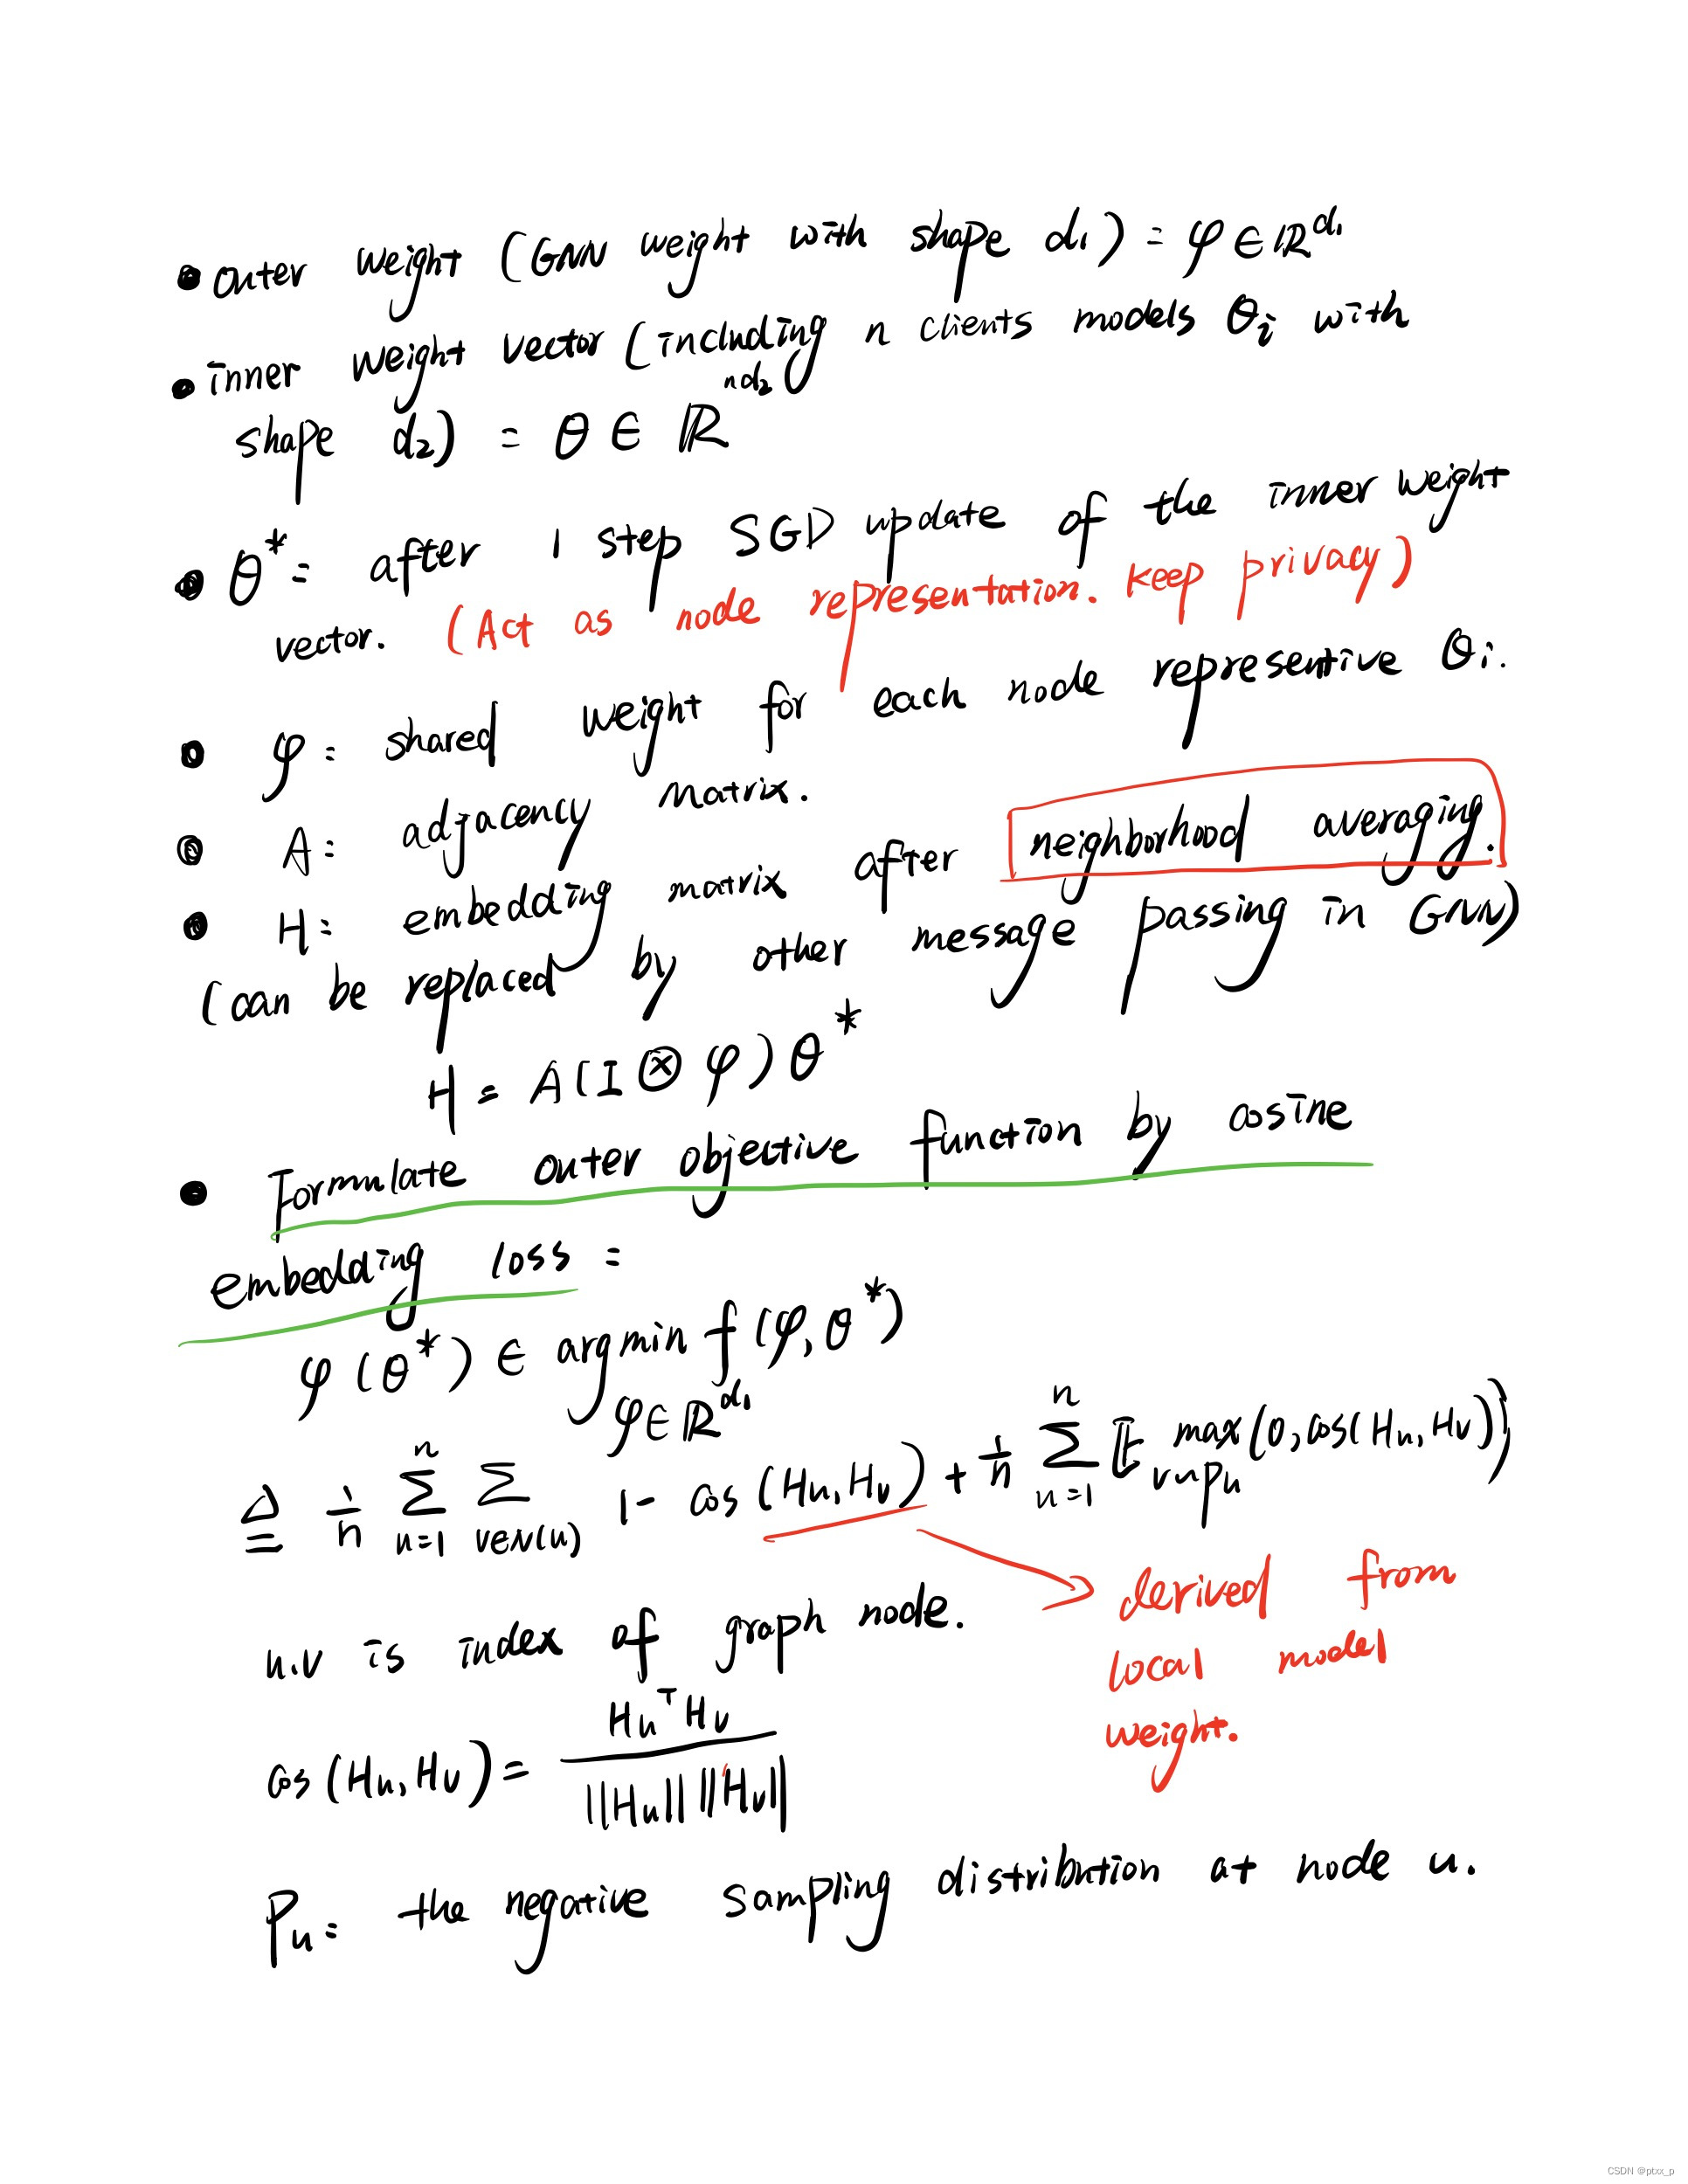 • outer weight (GNN weight with shape d₁) = φ ∈ ℝ^d₁
• inner weight vector (including n clients models θᵢ with
shape d₂) = θ ∈ ℝ^nd₂
• θ* = after 1 step SGD update of the inner weight
vector. (Act as node representation. keep privacy)
• φ = shared weight for each node representive θᵢ.
• A = adjacency matrix.
• H = embedding matrix after neighborhood averaging.
(can be replaced by other message passing in GNN)
H = A(I ⊗ φ)θ*
• Formulate outer objective function by cosine
embedding loss =
φ(θ*) ∈ argmin f(φ, θ*)
φ∈ℝ^d₁
≜ 1/n ∑_{u=1}^{n} ∑_{v∈N(u)} 1 - cos(Hu, Hv) + 1/n ∑_{u=1}^{n} 𝔼_{v∼pu} max(0, cos(Hu, Hv))
derived from
local model
weight.
u.v is index of graph node.
cos(Hu, Hv) = Hu^T Hv / ||Hu|| ||Hv||
Pu = the negative sampling distribution at node u.
CSDN @ptxx_p